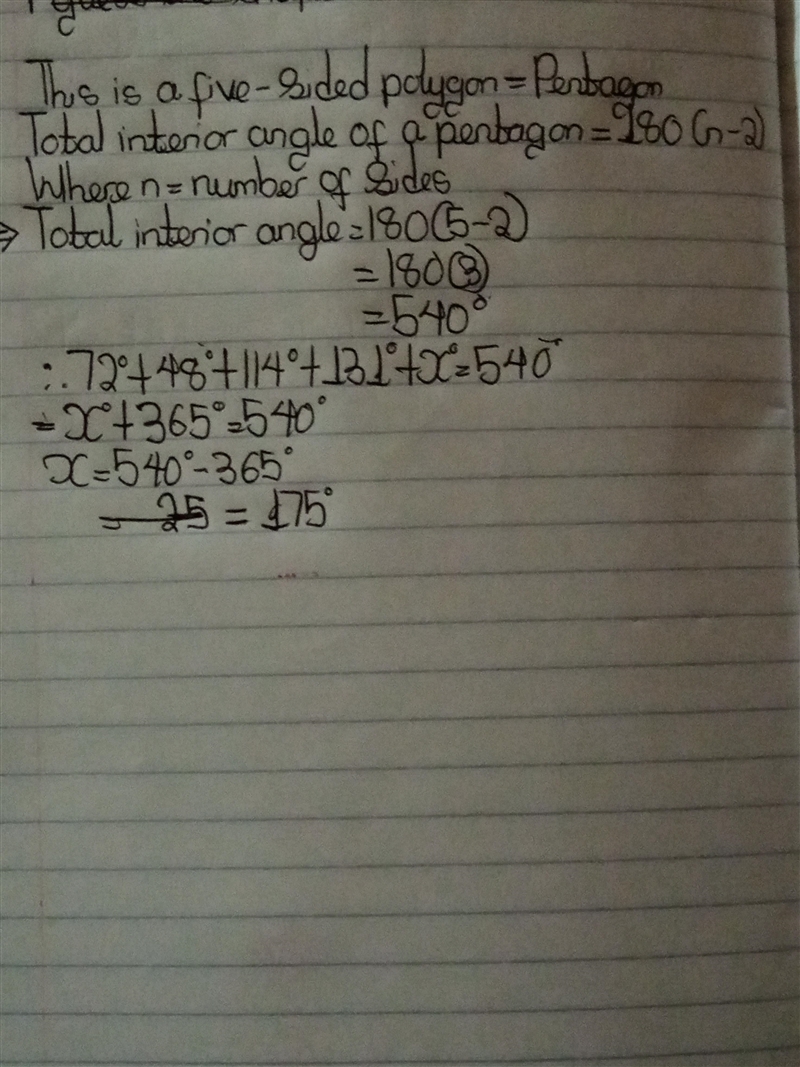 This is a five-sided polygon = Pentagon
Total interior angle of a pentagon = 180(n-2)
Where n = number of sides
⇒ Total interior angle = 180(5-2)
= 180(3)
= 540°
∴ 72° + 48° + 114° + 131° + x° = 540°
= x° + 365° = 540°
x = 540° - 365°
= 175°